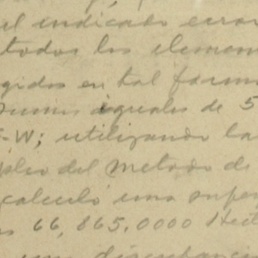 el indicado error
todos los elemen
gidos en tal forma
iguales de 5
W; utilizando la
pleo del Metodo de
calculó una super
66,865,0000 Hect
una discrepancia